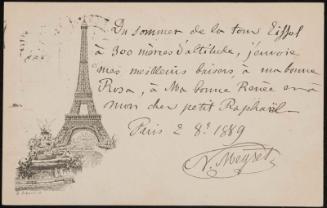 Du sommer de la tour Eiffel
à 300 mètres d'altitude, j'envoie
mes meilleurs baisers, à ma bonne
Rosa, à Ma bonne Renée et à
mon cher petit Raphaël
Paris 2 8re 1889
N. Meyret